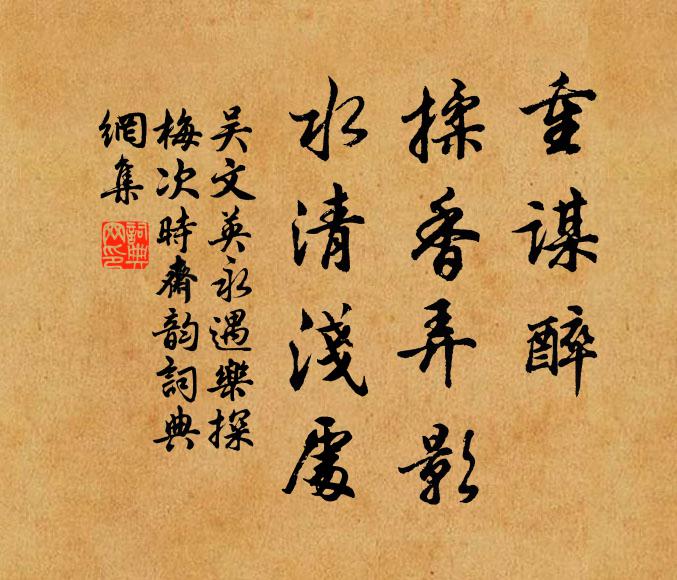 重谋醉
揉香弄影
水清淺處
吴文英永遇樂探
梅次時齋韵詞典
網集
詞典
网印